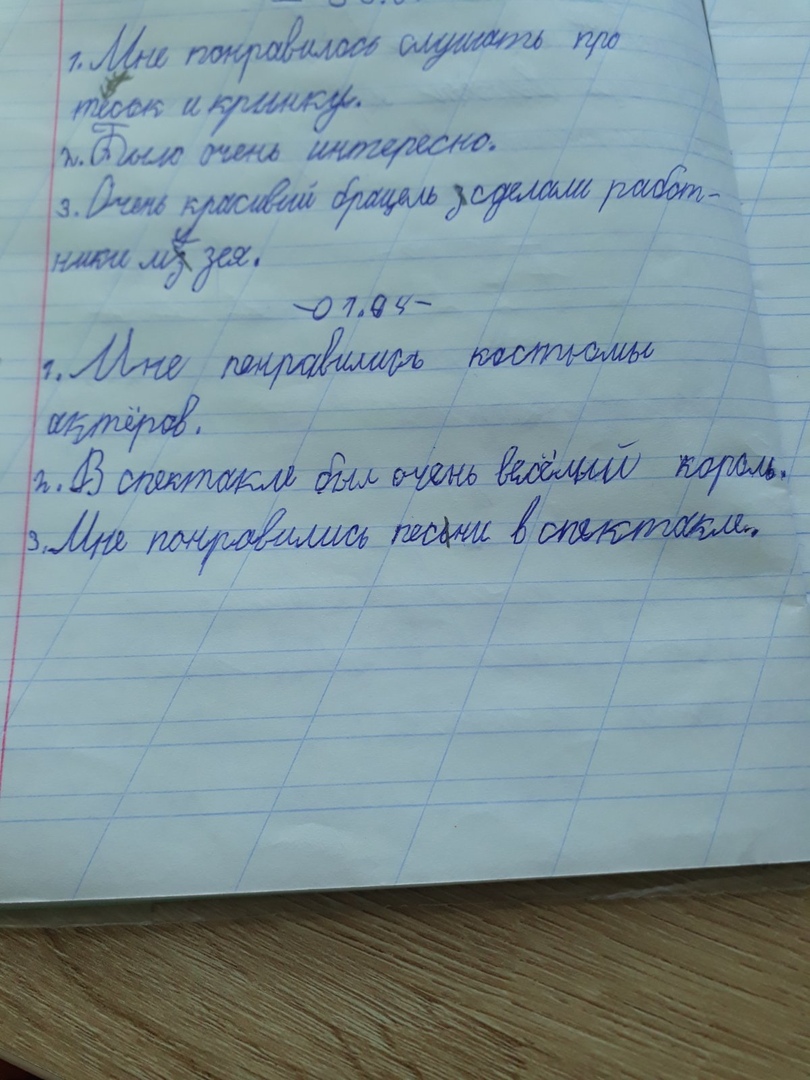 1. Мне понравилось слушать про
тесок и крынку.
2. Было очень интересно.
3. Очень красивый брацель сделали работ-
ники музея.
01.04
1. Мне понравились костюмы
актёров.
2. В спектакле был очень весёлый король.
3. Мне понравились песни в спектакле.